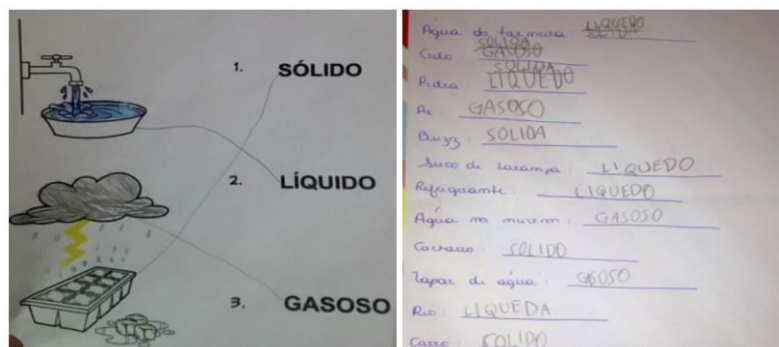 1. SÓLIDO
2. LÍQUIDO
3. GASOSO
Água da torneira: LIQUEDO
Gelo: SOLIDA GASOSO
Pedra: SOLIDA LIQUEDO
Ar GASOSO
SOLIDA
Suco de laranja: LIQUEDO
Refrigerante: LIQUEDO
Água na nuvem: GASOSO
Cachorro: SOLIDO
Vapor de água: GSOSO
Rio: LIQUEDA
Carro: SOLIDO